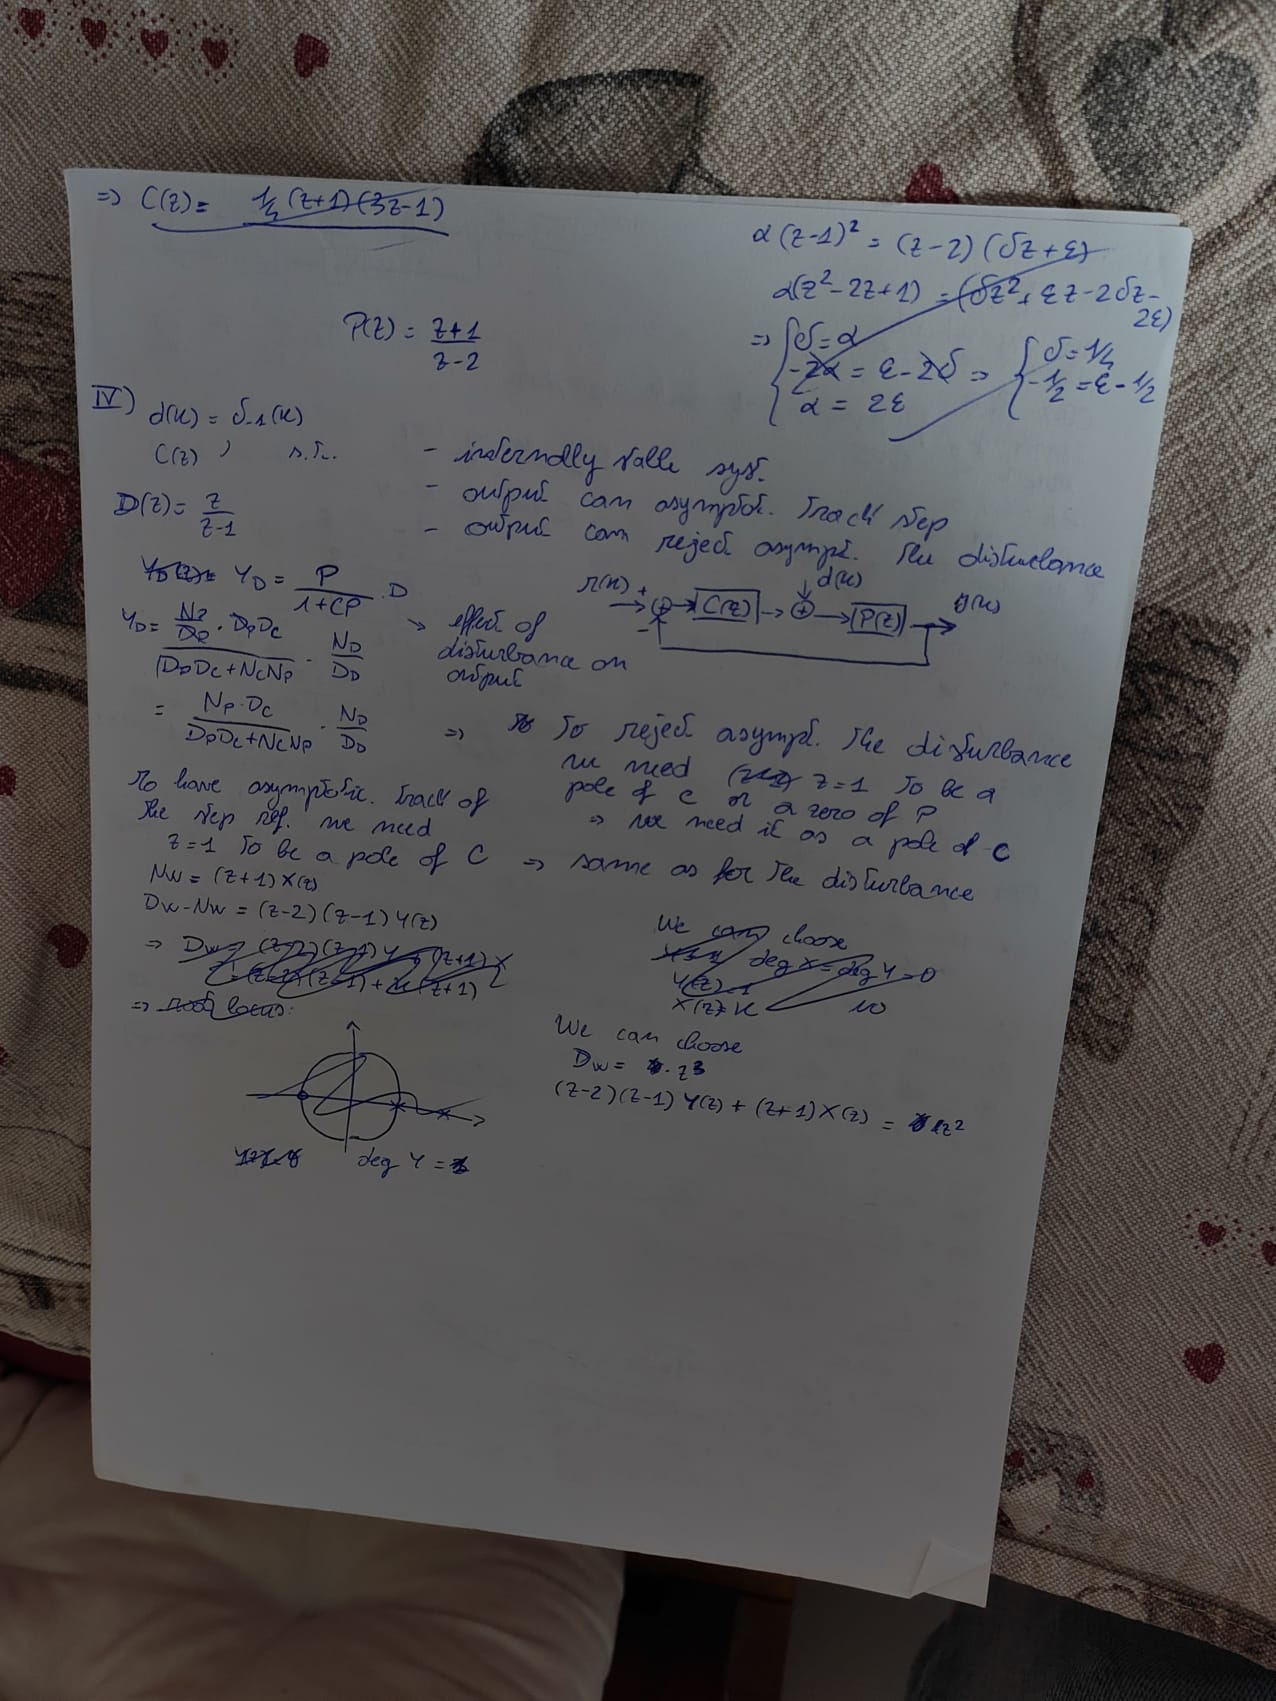 => C(z) = 1/2 (z+1)(3z-1)
α(z-1)² = (z-2)(δz+ε)
α(z²-2z+1) = (δz²+εz-2δz-
2ε)
=> { δ=α
-2α = ε-2δ =>
α = 2ε
{ δ=1/2
-1/2 = ε-1/2
P(z) = z+1 / z-2
IV) d(k) = δ-1(k)
C(z) s.t.
- internally stable syst.
- output can asymptot. track step
- output can reject asympt. the disturbance
D(z) = z / z-1
YD = P / 1+CP · D
-> effect of
disturbance on
output
r(k) + - C(z) + d(k) P(z) y(k)
YD = NP/DP · DPDC / DPDC+NCNP · ND / DD
= NP·DC / DPDC+NCNP · ND / DD
=> To reject asympt. the disturbance
we need z=1 to be a
pole of C or a zero of P
=> we need it as a pole of C
To have asymptotic. track of
the step ref. we need
z=1 to be a pole of C => same as for the disturbance
NW = (z+1)X(z)
DW-NW = (z-2)(z-1)Y(z)
=> DW = (z-2)(z-1)Y + (z+1)X
=> root locus:
deg Y =
We can choose
deg X = deg Y = 0
Y(z)=1
X(z)=K
NO
We can choose
DW = z³
(z-2)(z-1)Y(z) + (z+1)X(z) = z²